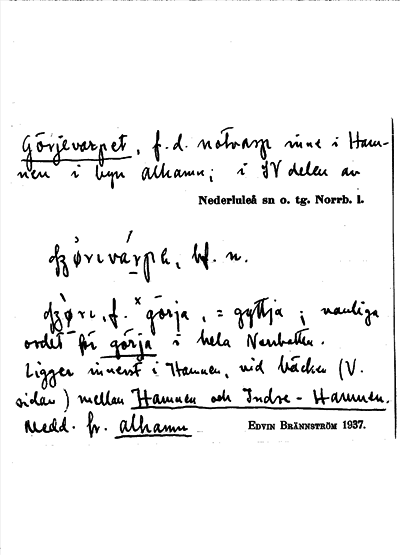 Görjevarpet, f.d. notvarp inne i Ham-
nen i byn alhamn; i SV delen av
Nederluleå sn o. tg. Norrb. l.
bf. n.
f. ˣgörja, = gyttja; vanliga
ordet för görja i hela Norrbotten.
Ligger innerst i Hamnen, vid bäcken (V.
sidan) mellan Hamnen och Indre-Hamnen.
Medd. fr. alhamn EDVIN BRÄNNSTRÖM 1937.